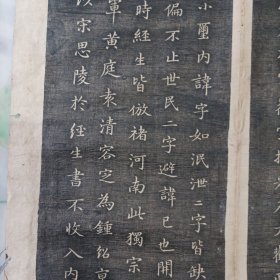 小璽内諱字如泯泄二字皆缺
偏不止世民二字避諱已也開
時經生皆倣褚河南此獨宗
軍黄庭袁清容定為鍾紹京
宋思陵於經生書不收入内